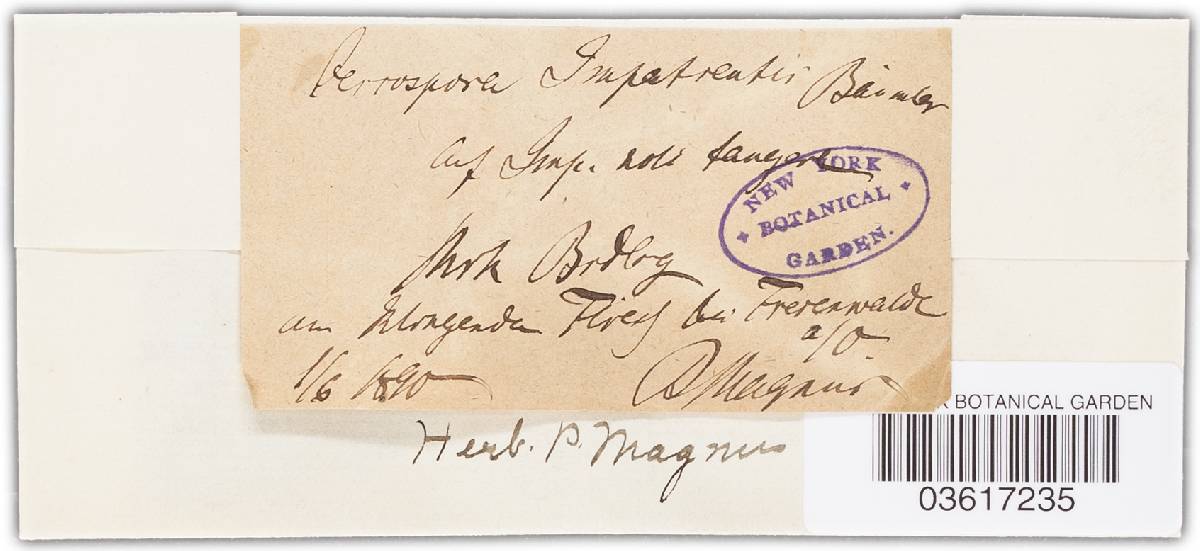 Cercospora Impatientis Bäumler
auf Imp. noli tangere
NEW YORK
BOTANICAL
GARDEN.
Mrk Brdbg
am Klingenden Fliess bei Freienwalde
a/O.
1/6 1890 P Magnus
Herb. P. Magnus
BOTANICAL GARDEN
03617235